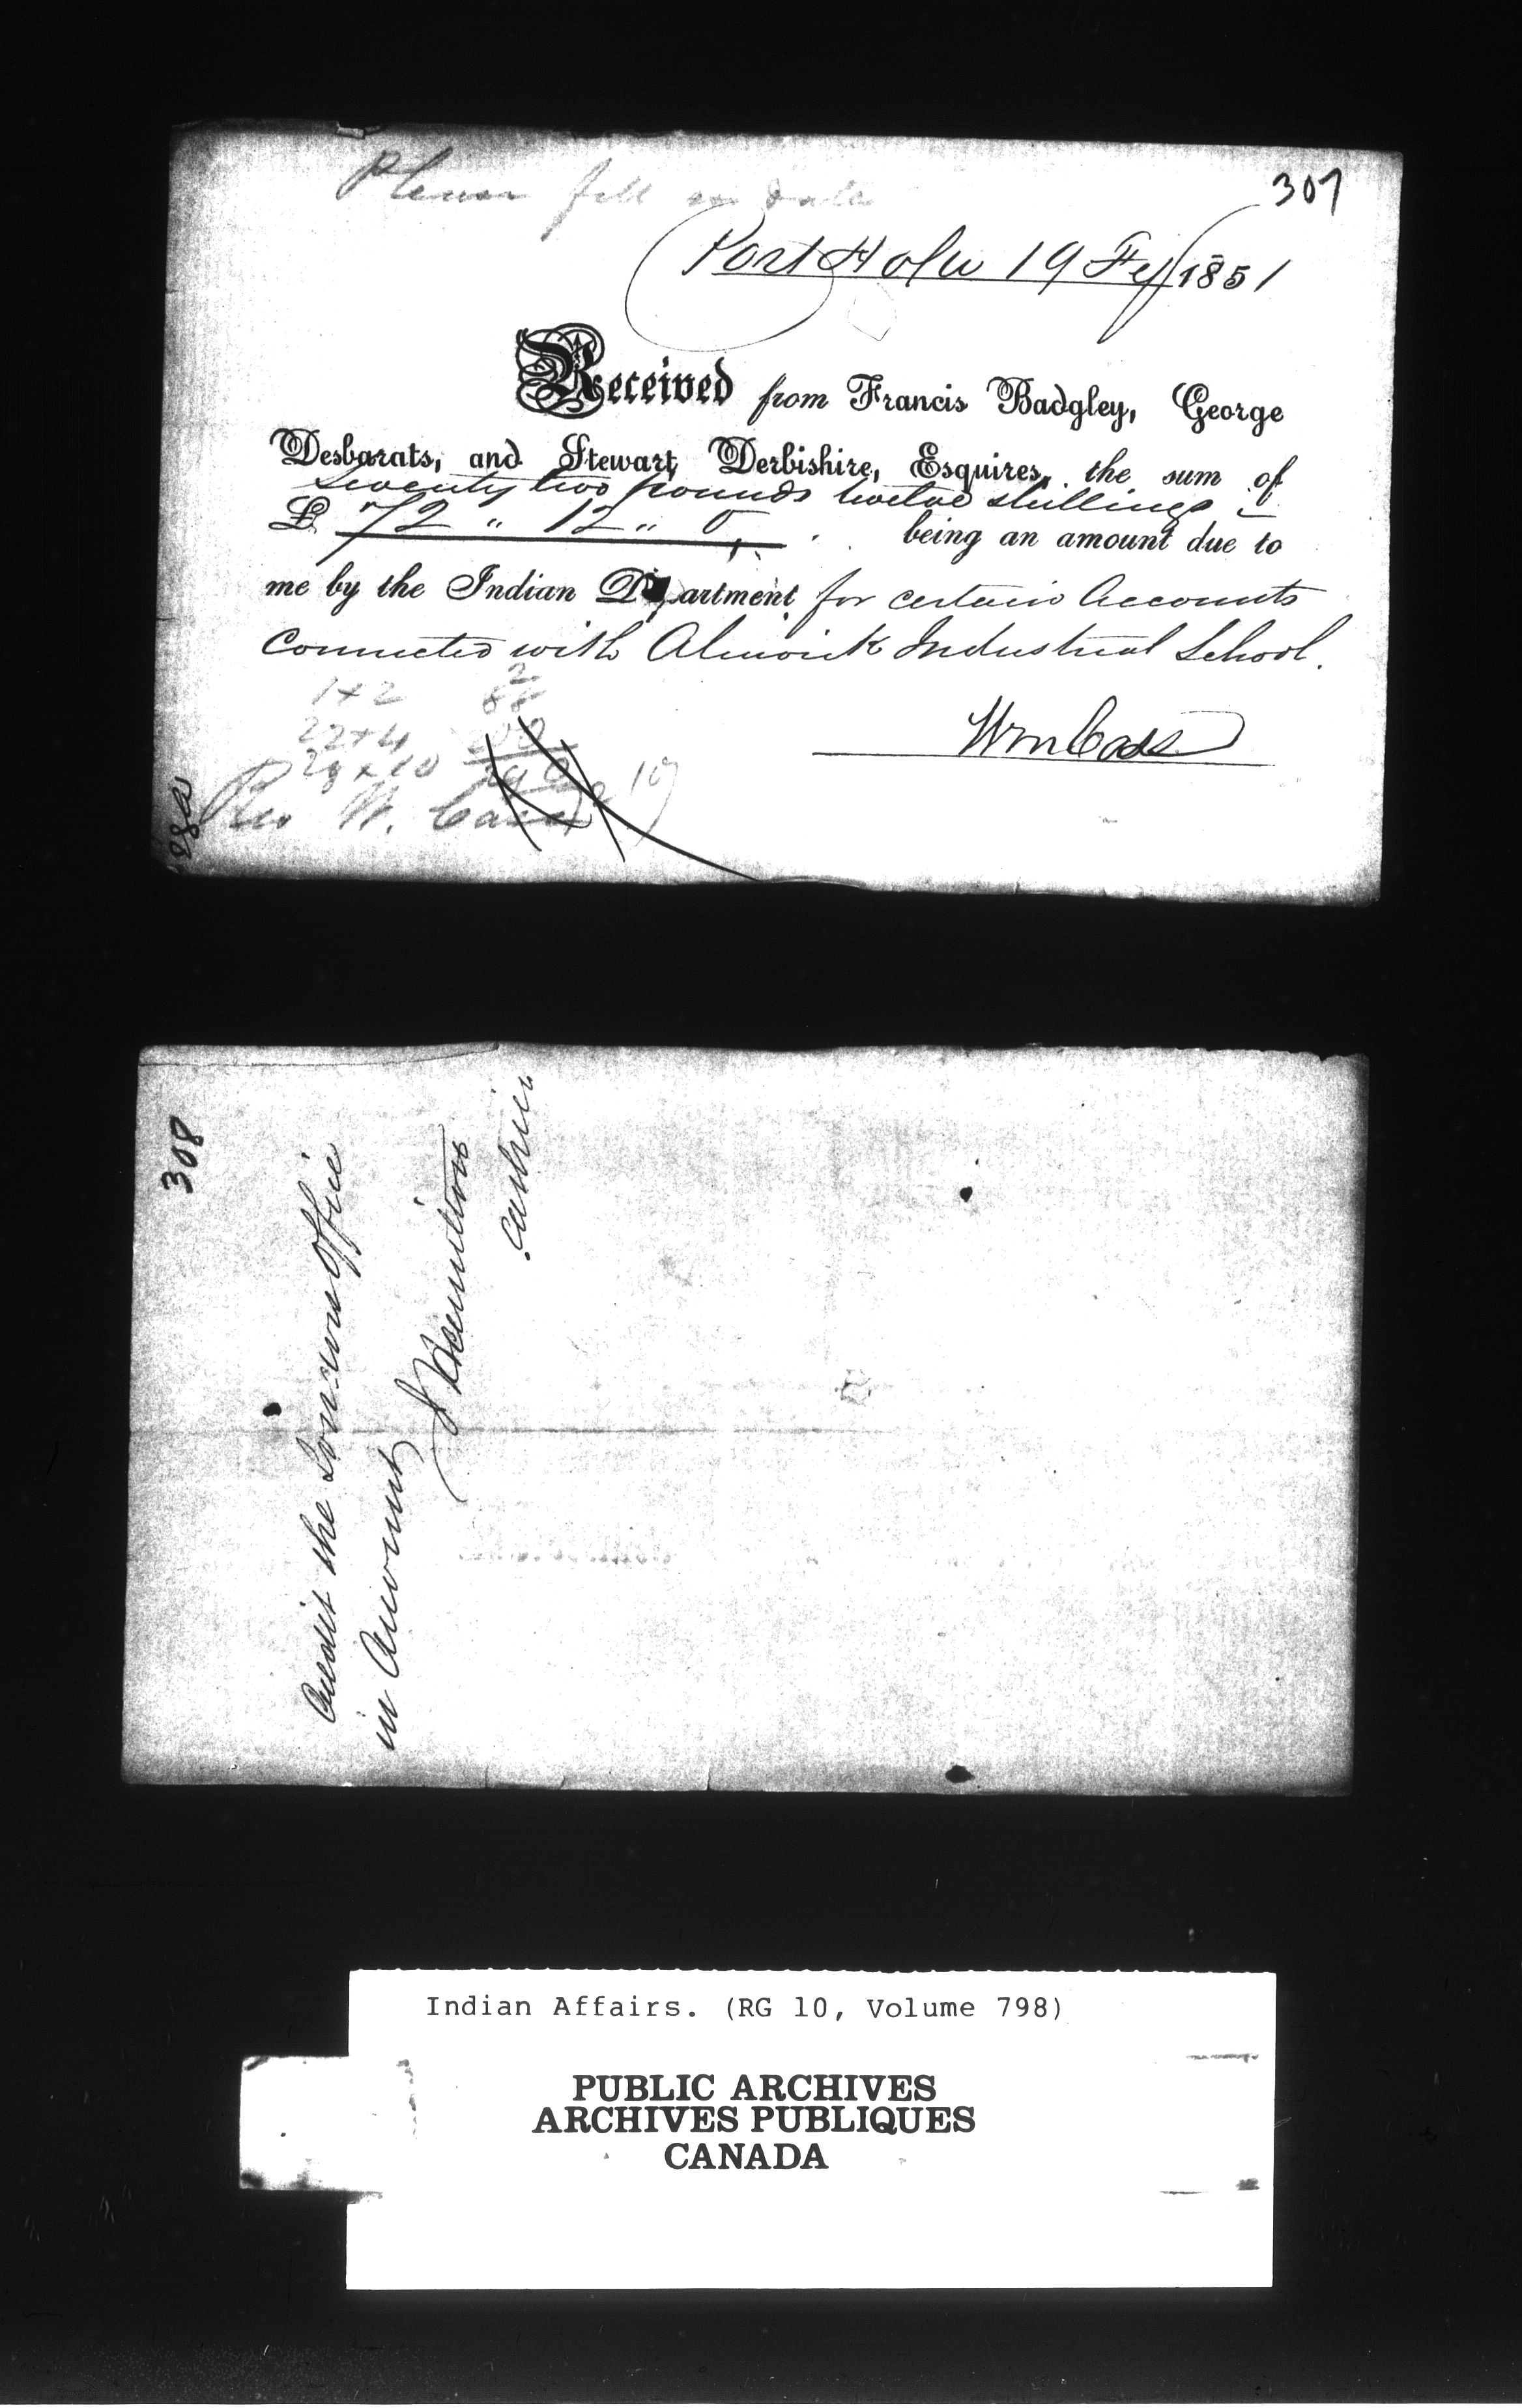 Please fill in date
307
Port Hope 19 Fey 1851
Received from Francis Badgley, George
Desbarats, and Stewart Derbishire, Esquires, the sum of
seventy two pounds twelve shillings
£ 72 " 12 " 0 being an amount due to
me by the Indian Department for certain Accounts
Connected with Alnwick Industrial School.
Wm Case
1+2
22+4
29+10
Rev W. Case
308
Credit the Commns Office
in Account
J Hamilton
Cashier
Indian Affairs. (RG 10, Volume 798)
PUBLIC ARCHIVES
ARCHIVES PUBLIQUES
CANADA